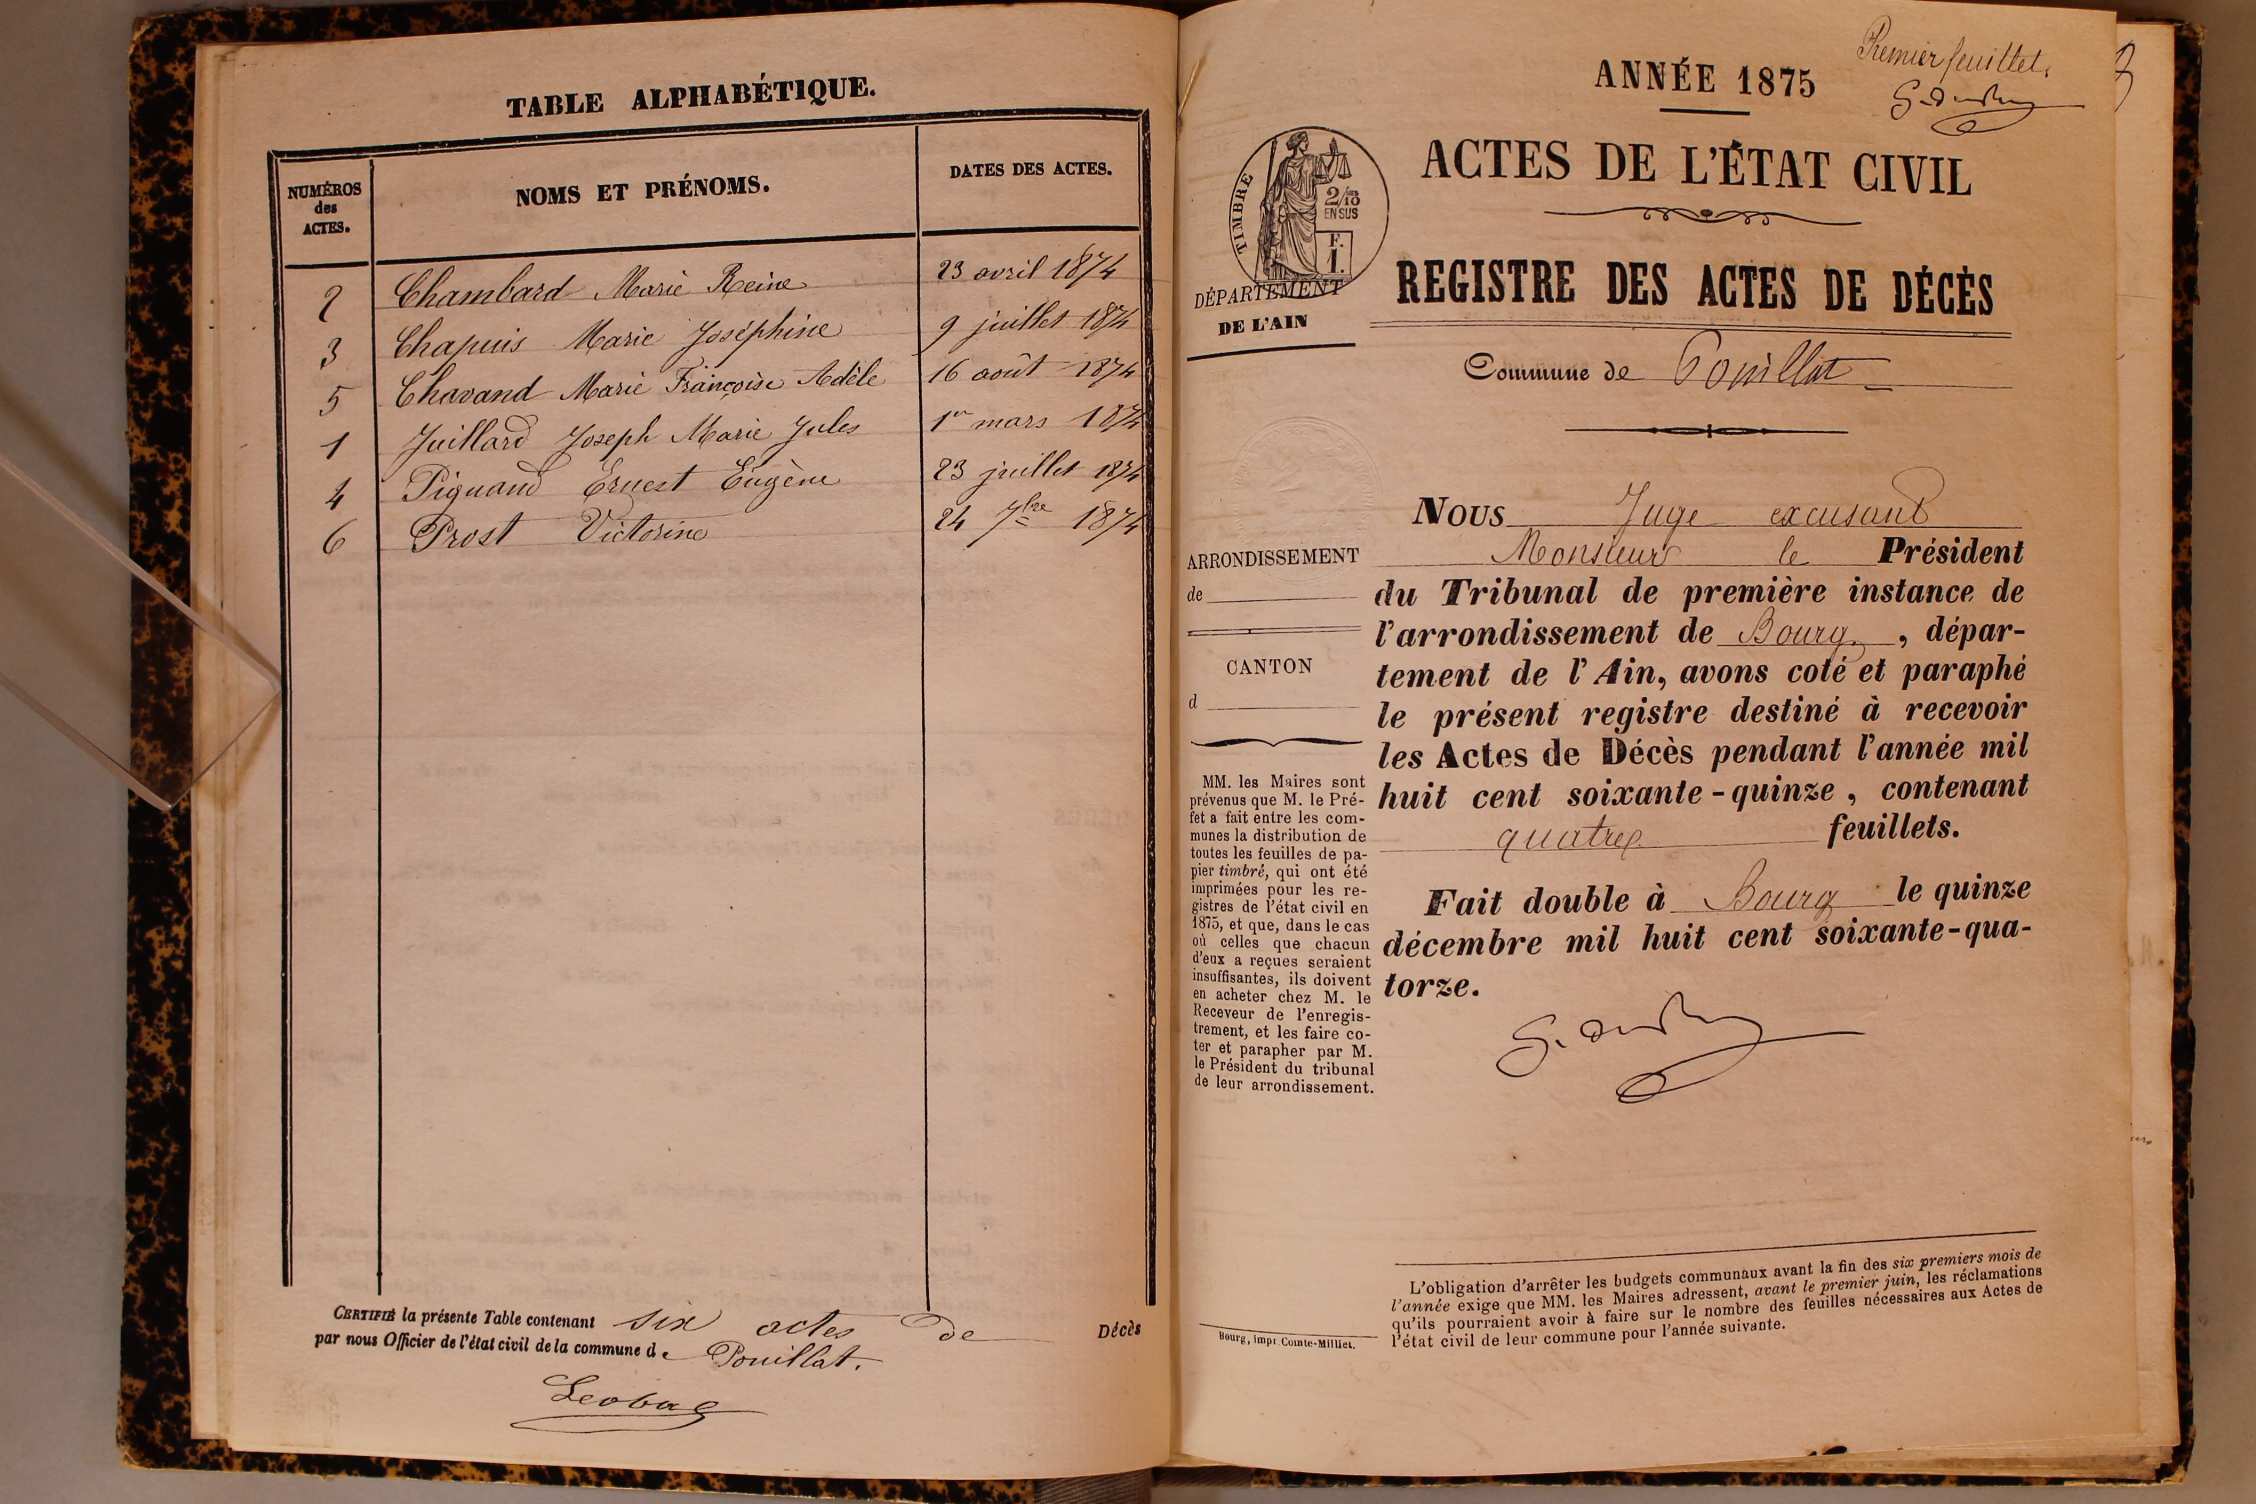 TABLE ALPHABÉTIQUE.
NUMÉROS
des
ACTES.
NOMS ET PRÉNOMS.
DATES DES ACTES.
2 Chambard Marie Reine 23 avril 1874
3 Chapuis Marie Joséphine 9 juillet 1874
5 Chavand Marie Françoise Adèle 16 août 1874
1 Juillard Joseph Marie Jules 1er mars 1874
4 Piguand Ernest Eugène 23 juillet 1874
6 Prost Victorine 24 7bre 1874
CERTIFIÉ la présente Table contenant six actes de Décès
par nous Officier de l'état civil de la commune de Pouillat.
Premier feuillet.
ANNÉE 1875
ACTES DE L'ÉTAT CIVIL
TIMBRE
2/10
EN SUS
F.
1.
DÉPARTEMENT
DE L'AIN
REGISTRE DES ACTES DE DÉCÈS
Commune de Pouillat
ARRONDISSEMENT
de
CANTON
d
MM. les Maires sont
prévenus que M. le Pré-
fet a fait entre les com-
munes la distribution de
toutes les feuilles de pa-
pier timbré, qui ont été
imprimées pour les re-
gistres de l'état civil en
1875, et que, dans le cas
où celles que chacun
d'eux a reçues seraient
insuffisantes, ils doivent
en acheter chez M. le
Receveur de l'enregis-
trement, et les faire co-
ter et parapher par M.
le Président du tribunal
de leur arrondissement.
NOUS Juge excusant
Monsieur le Président
du Tribunal de première instance de
l'arrondissement de Bourg, dépar-
tement de l'Ain, avons coté et paraphé
le présent registre destiné à recevoir
les Actes de Décès pendant l'année mil
huit cent soixante-quinze, contenant
quatre feuillets.
Fait double à Bourg le quinze
décembre mil huit cent soixante-qua-
torze.
L'obligation d'arrêter les budgets communaux avant la fin des six premiers mois de
l'année exige que MM. les Maires adressent, avant le premier juin, les réclamations
qu'ils pourraient avoir à faire sur le nombre des feuilles nécessaires aux Actes de
l'état civil de leur commune pour l'année suivante.
Bourg, impr. Comte-Milliet.